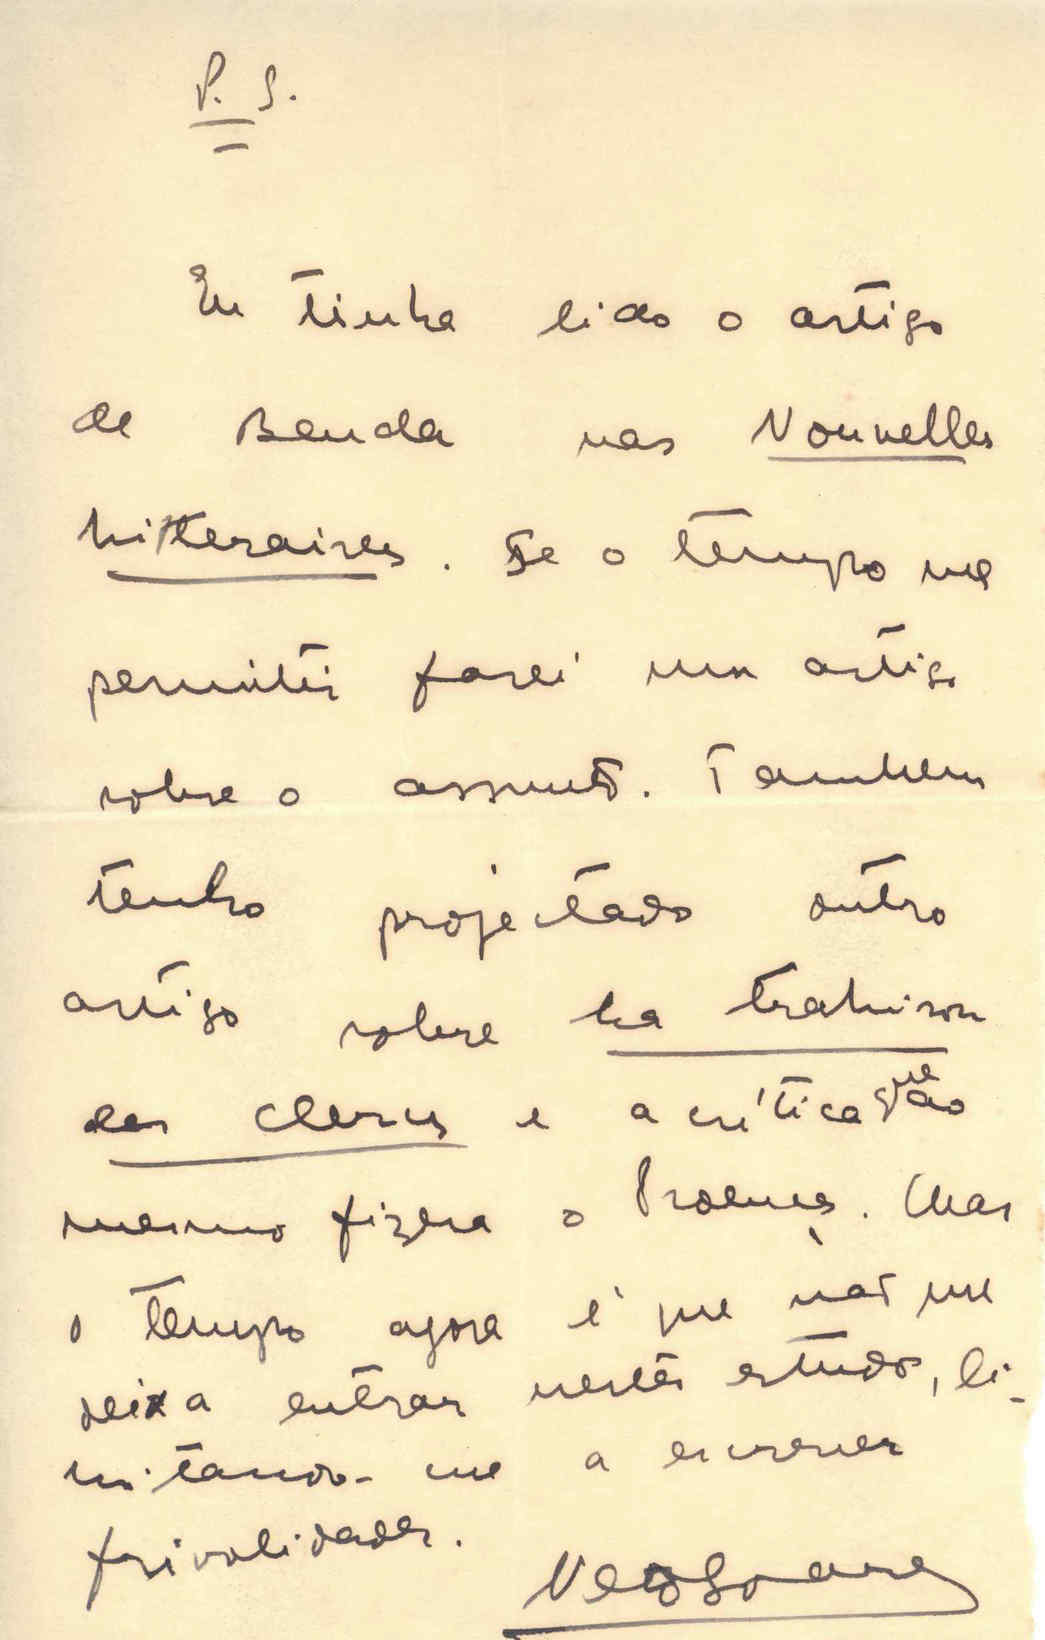 P. S.
Eu tinha lido o artigo
de Benda nas Nouvelles
Litteraires. Se o tempo me
permitir farei um artigo
sobre o assunto. Tambem
tenho projectado outro
artigo sobre La trahison
des clercs e a crítica que ao
mesmo fizera o Proença. Mas
o tempo agora é que não me
deixa entrar nestes estudos, li-
mitando-me a escrever
frivolidades.